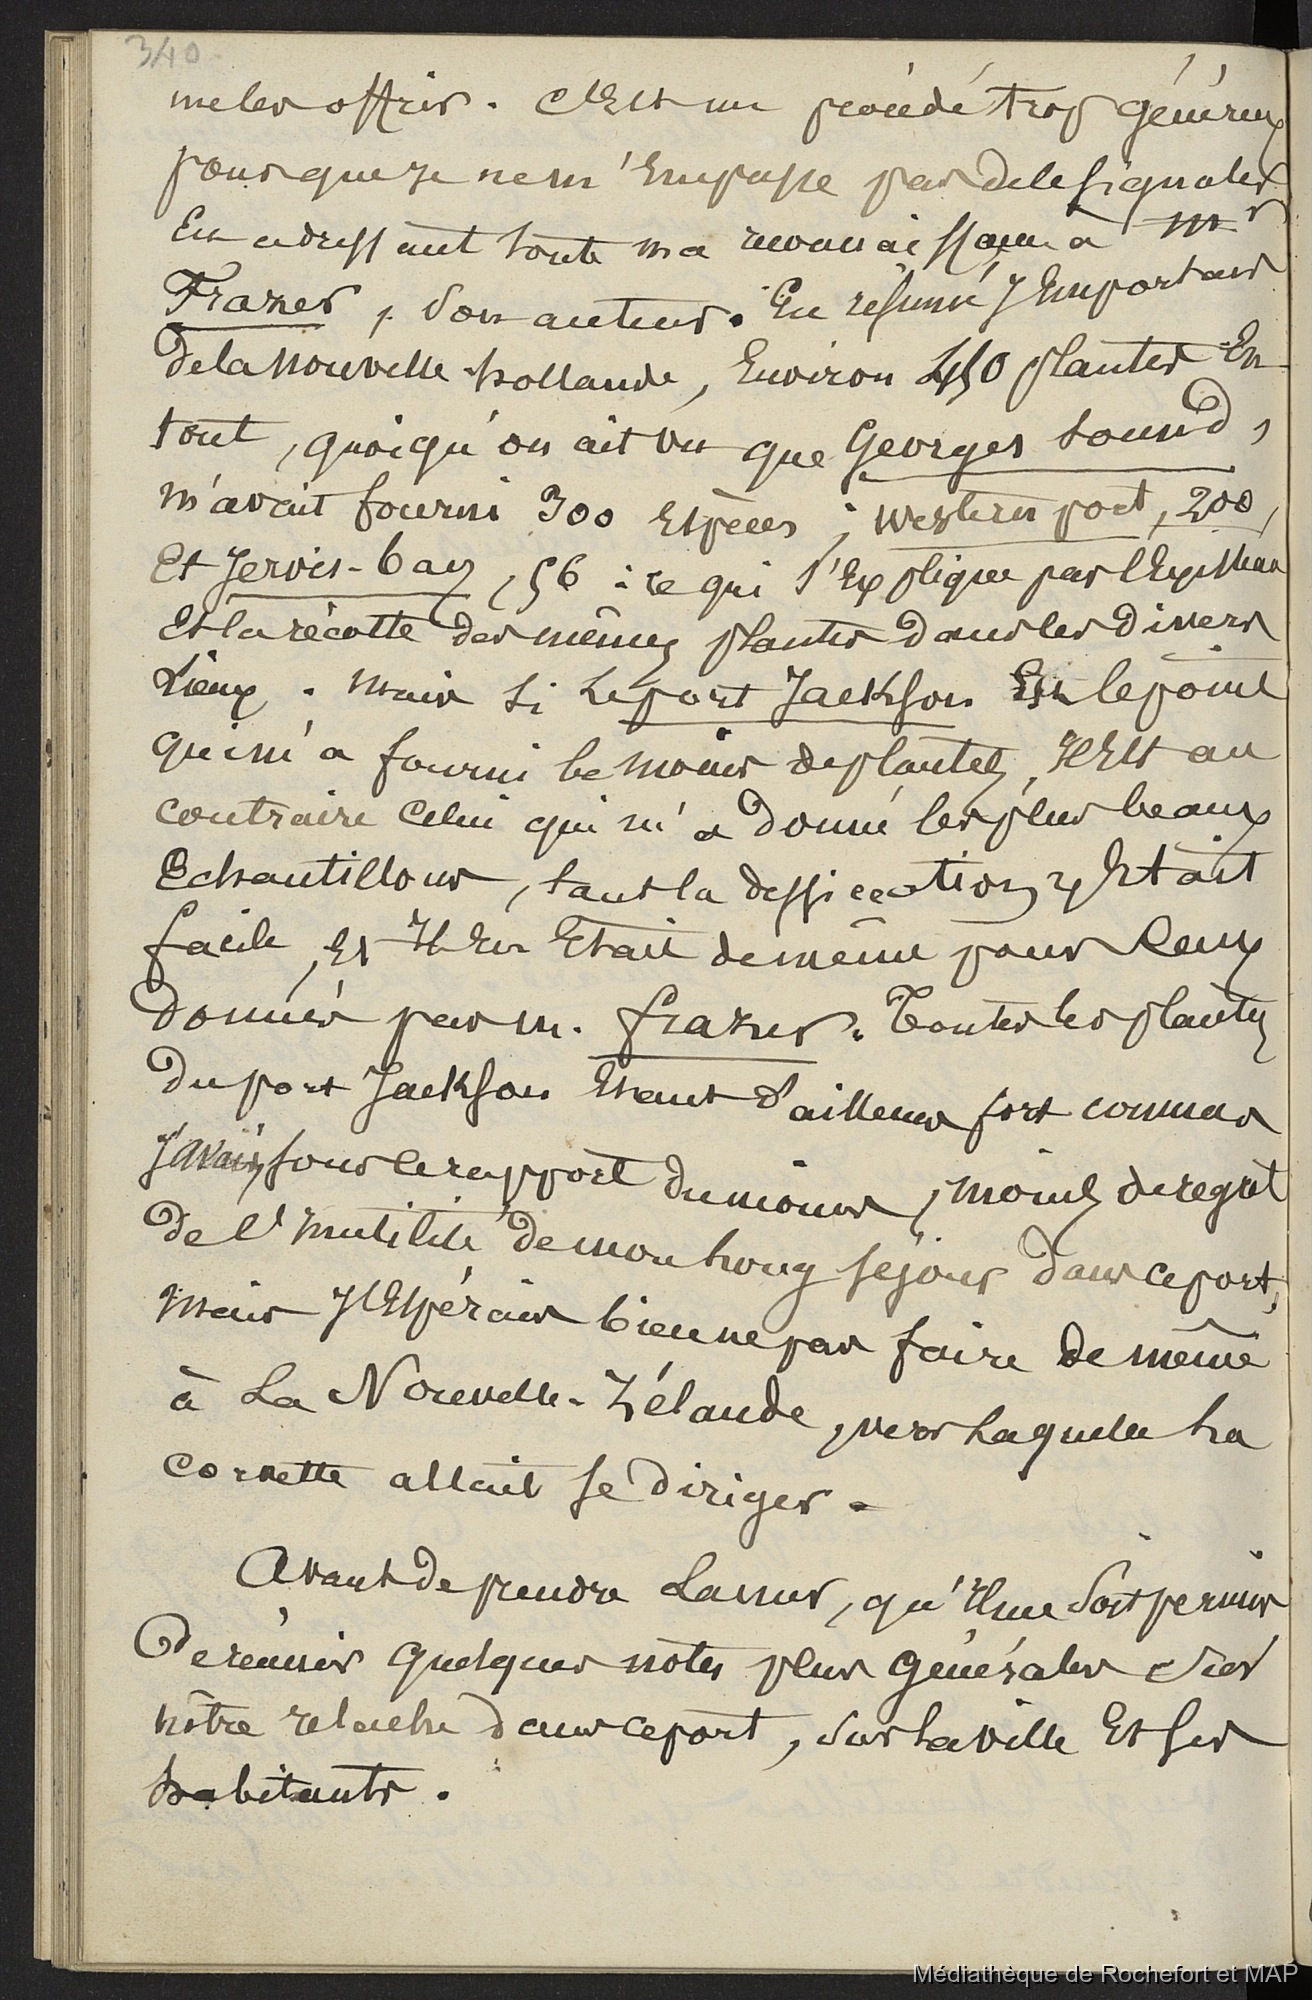 340.
me les offrir. C'Est un procédé trop généreux
pour que je ne m'Empresse pas de le signaler
En adressant toute ma reconnaissance à Mr
Frazer, son auteur. En résumé j'Emportais
de la nouvelle-hollande, Environ 450 plantes En
tout, quoiqu'on ait vu que Georges Sound,
m'avait fourni 300 Espèces ; western port, 200,
Et Jervis-bay, 56 : ce qui s'Explique par l'Existence
Et la récolte des mêmes plantes dans les divers
Lieux. Mais si Le port Jackson Est le point
qui m'a fourni le moins de plantes, Il Est au
contraire celui qui m'a donné les plus beaux
Echantillons, tant la dessiccation y Etait
facile, Et Il En Etait de même pour Ceux
donnés par m. frazer. Toutes les plantes
du port Jackson Etant d'ailleurs fort connues
J'avais, sous ce rapport du moins, moins de regret
de l'Inutilité de mon Long séjour dans ce port,
mais J'Espérais bien ne pas faire de même
à La Nouvelle-Zélande, vers Laquelle La
corvette allait se diriger.
Avant de prendre La mer, qu'Il me soit permis
De réunir quelques notes plus générales sur
nôtre relache dans ce port, sur La ville Et ses
habitants.
Médiathèque de Rochefort et MAP